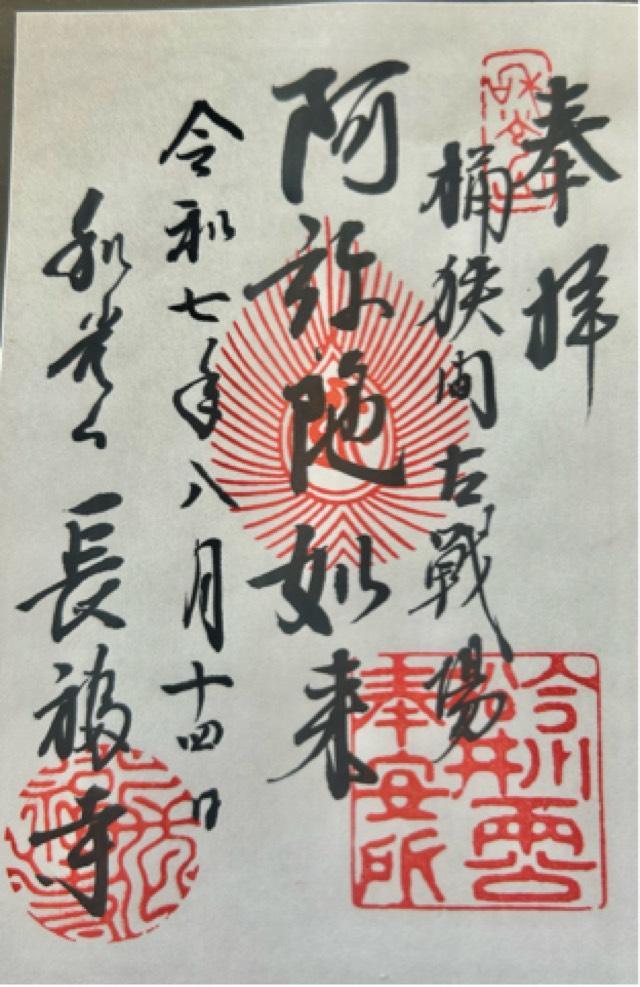 奉拝
桶狭間古戦場
阿弥陀如来
令和七年八月十四日
和光山 長福寺
今川
松井両公
奉安所